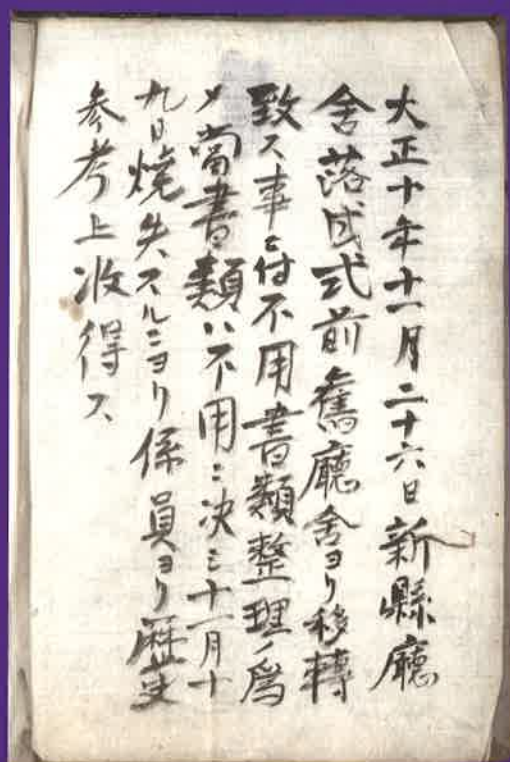 大正十年十一月二十六日新縣廳
舎落成式前舊廳舎ヨリ移轉
致ス事ニ付不用書類整理ノ爲
メ當書類ハ不用ニ決シ十一月十
九日燒失スルニヨリ係員ヨリ歴史
参考上收得ス